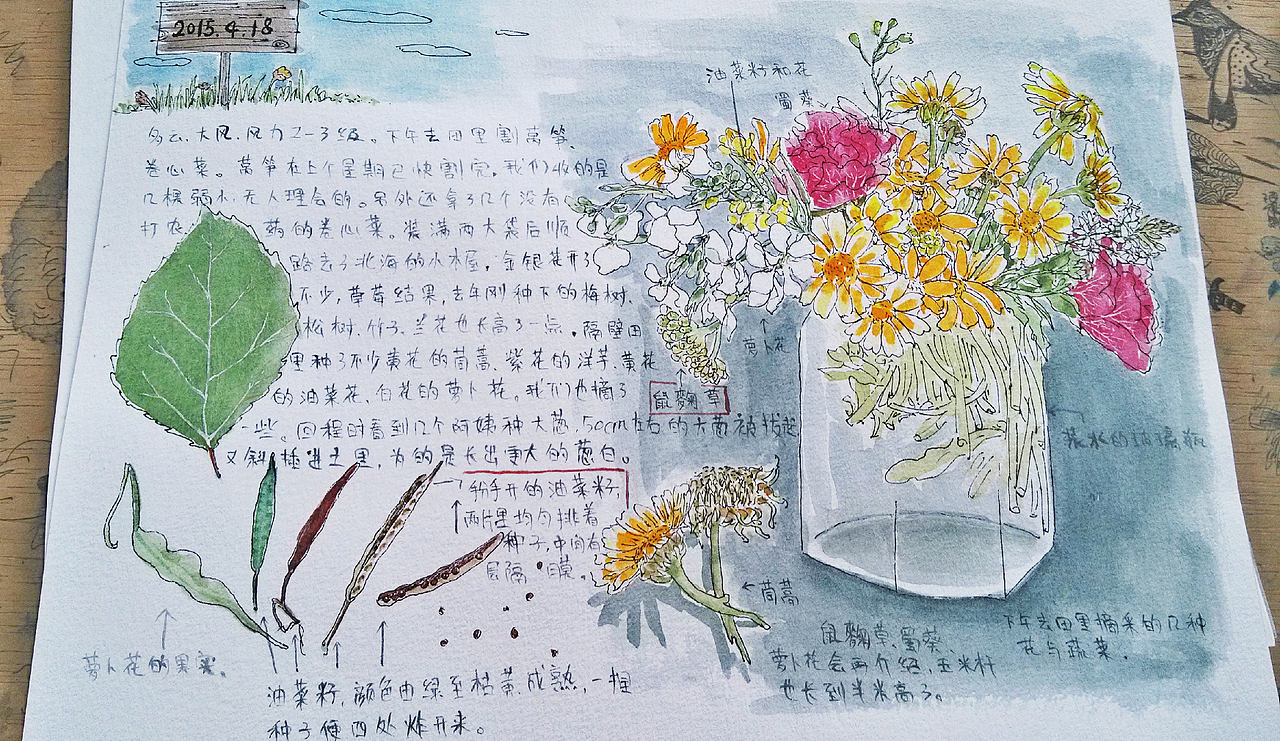 2015.4.18
多云、大风、风力2-3级。下午去田里割莴笋、
卷心菜。莴笋在上个星期已快割完,我们收的是
几棵弱小、无人理会的。另外还拿了几个没有
打农药的卷心菜。装满两大袋后顺
路去了北海的小木屋,金银花开了
不少,草莓结果,去年刚种下的梅树、
松树、竹子、兰花也长高了一点。隔壁田
里种了不少黄花的茼蒿、紫花的洋芋、黄花
的油菜花、白花的萝卜花。我们也摘了
一些。回程时看到几个阿姨种大葱,50cm左右的大葱被拔起
又斜插进土里,为的是长出更大的葱白。
油菜籽和花
蜀葵
萝卜花
鼠麴草
装水的玻璃瓶
茼蒿
掰开的油菜籽,
两片里均匀排着
种子,中间有
层隔膜。
萝卜花的果实。
油菜籽,颜色由绿至枯黄,成熟,一捏
种子便四处炸开来。
鼠麴草、蜀葵、
萝卜花会再介绍,玉米籽
也长到半米高了。
下午去田里摘来的几种
花与蔬菜。